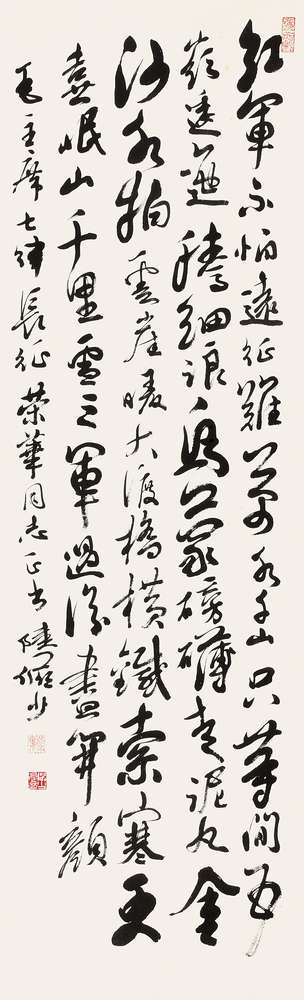 紅軍不怕遠征難萬水千山只等閒五
嶺逶迤騰細浪烏蒙磅礴走泥丸金
沙水拍雲崖暖大渡橋橫鐵索寒更
喜岷山千里雪三軍過後盡開顏
毛主席七律長征榮華同志正書陸儼少